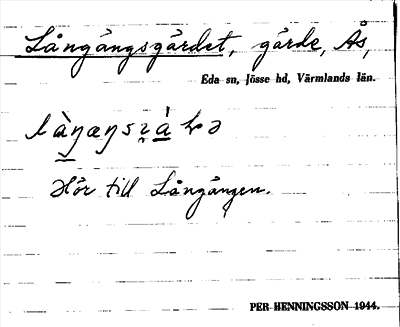 Långångsgärdet, gärde, Ås,
Eda sn, Jösse hd, Värmlands län.
Hör till Långången.
PER HENNINGSSON 1944.